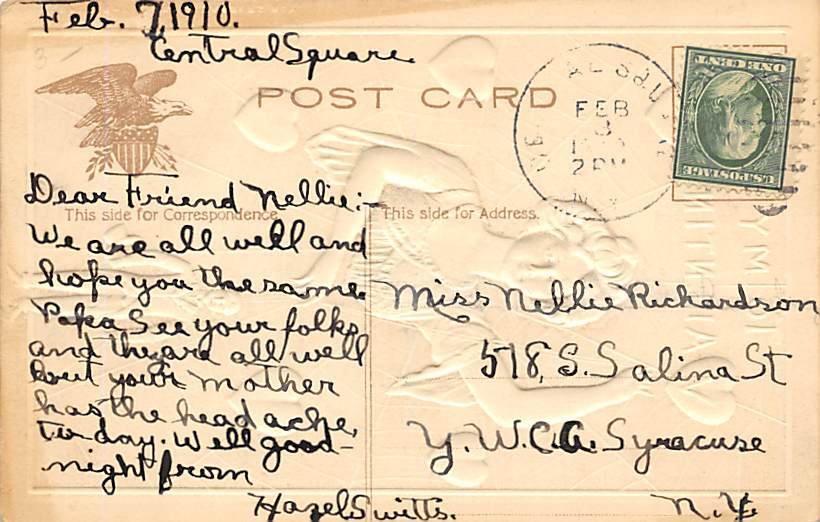 Feb. 7, 1910.
Central Square.
POST CARD
FEB
8
2PM
N.Y.
ONE CENT
U.S. POSTAGE
Dear Friend Nellie:-
This side for Correspondence
This side for Address.
We are all well and
hope you the same.
Papa See your folks
and they are all well
but your mother
has the head ache,
to-day. Well good-
night from
Hazel Switts.
Miss Nellie Richardson
518, S. Salina St
Y.W.C.A. Syracuse
N.Y.